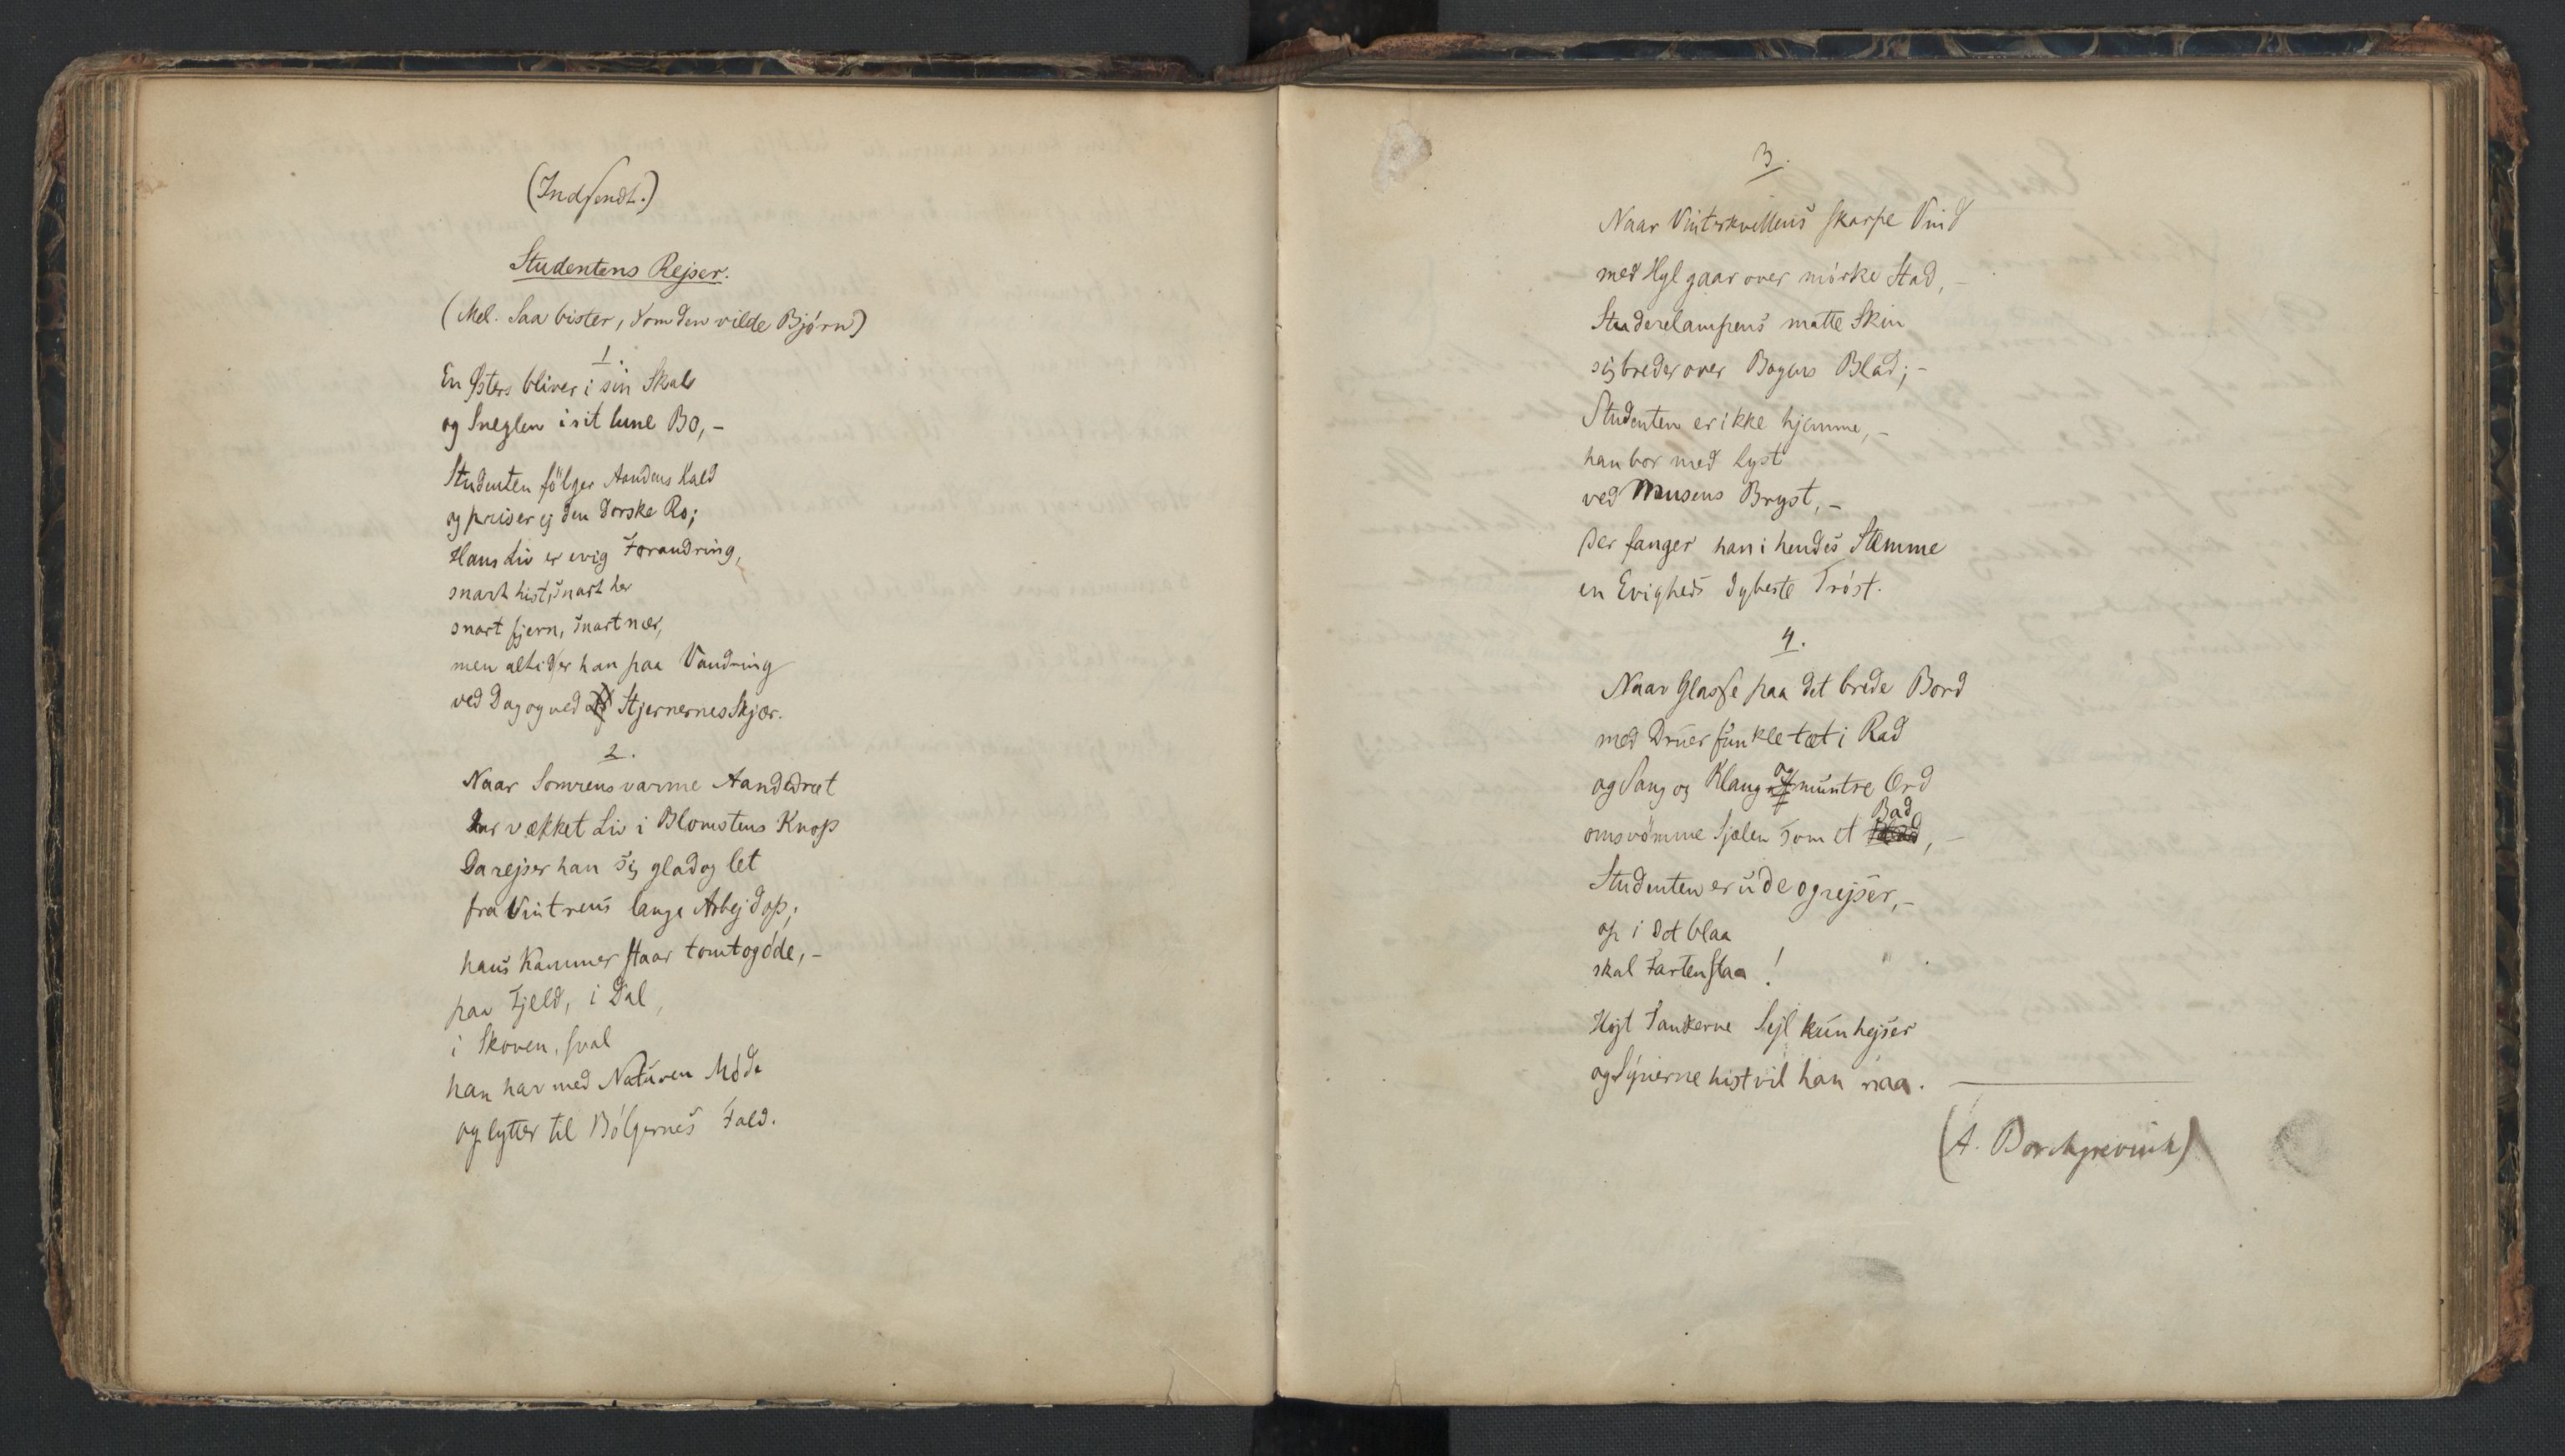 (Indsendt.)
Studentens Rejser.
(Mel. Saa bister, som den vilde Bjørn)
1.
En Østers bliver i sin Skal
og Sneglen i sit lune Bo, -
Studenten følger Aandens Kald
og priser ej den dorske Ro;
Hans Liv er evig Forandring,
snart hist, snart her
snart fjern, snart nær,
men altid er han paa Vandring
ved Dag og ved Stjernernes Skjær.
2.
Naar Somrens varme Aandedræt
har vækket Liv i Blomstens Knop
Da rejser han sig glad og let
fra Vintrens lange Arbejd op;
hans Kammer staar tomt og øde, -
paa Fjeld, i Dal,
i Skoven, sval
han har med Naturen Møde
og lytter til Bølgernes Fald.
3.
Naar Vinterkvellens skarpe Vind
med Hyl gaar over mørke Stad, -
Studerelampens matte Skin
sig breder over Bogens Blad; -
Studenten er ikke hjemme, -
han bor med Lyst
ved Musens Bryst, -
Der fanger han i hendes Stemme
en Evigheds dybeste Trøst.
4.
Naar Glasse paa det brede Bord
med Druer funkle tæt i Rad
og Sang og Klang og muntre Ord
omsvømme Sjælen som et Bad, -
Studenten er ude og rejser, -
op i det blaa
skal Farten staa!
Højt Tankerne Sejl kun hejser
og Synerne hist vil han naa.
(A. Borchgrevink)